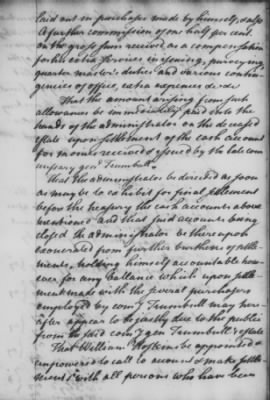 laid out in purchases made by himself, & also
A further commission of one half per cent.
on the gross sum received as a compensation
for his extra services in issuing, purveying,
quarter master's duties and various contin-
gencies of office, extra expences &c &c
That the amount arising from such
allowances be immediately paid into the
hands of the administrator on the deceased
estate upon settlement of the cash account
for monies received & issued by the late com
missary genl Trumbull.
That the administrator be directed as soon
as may be to exhibit for final settlement
before the treasury the cash accounts above
mentioned and that said accounts being
closed the administrator be thereupon
exonerated from further burthen of settle
ments, holding himself accountable how-
ever for any ballance which upon settle
ment made with the several purchasers
employed by comy Trumbull may here-
after appear to be justly due to the public
from the said comy gen Trumbull's estate
That William Hoskins be appointed &
empowered to call to account & make settle
ment with all persons who have been